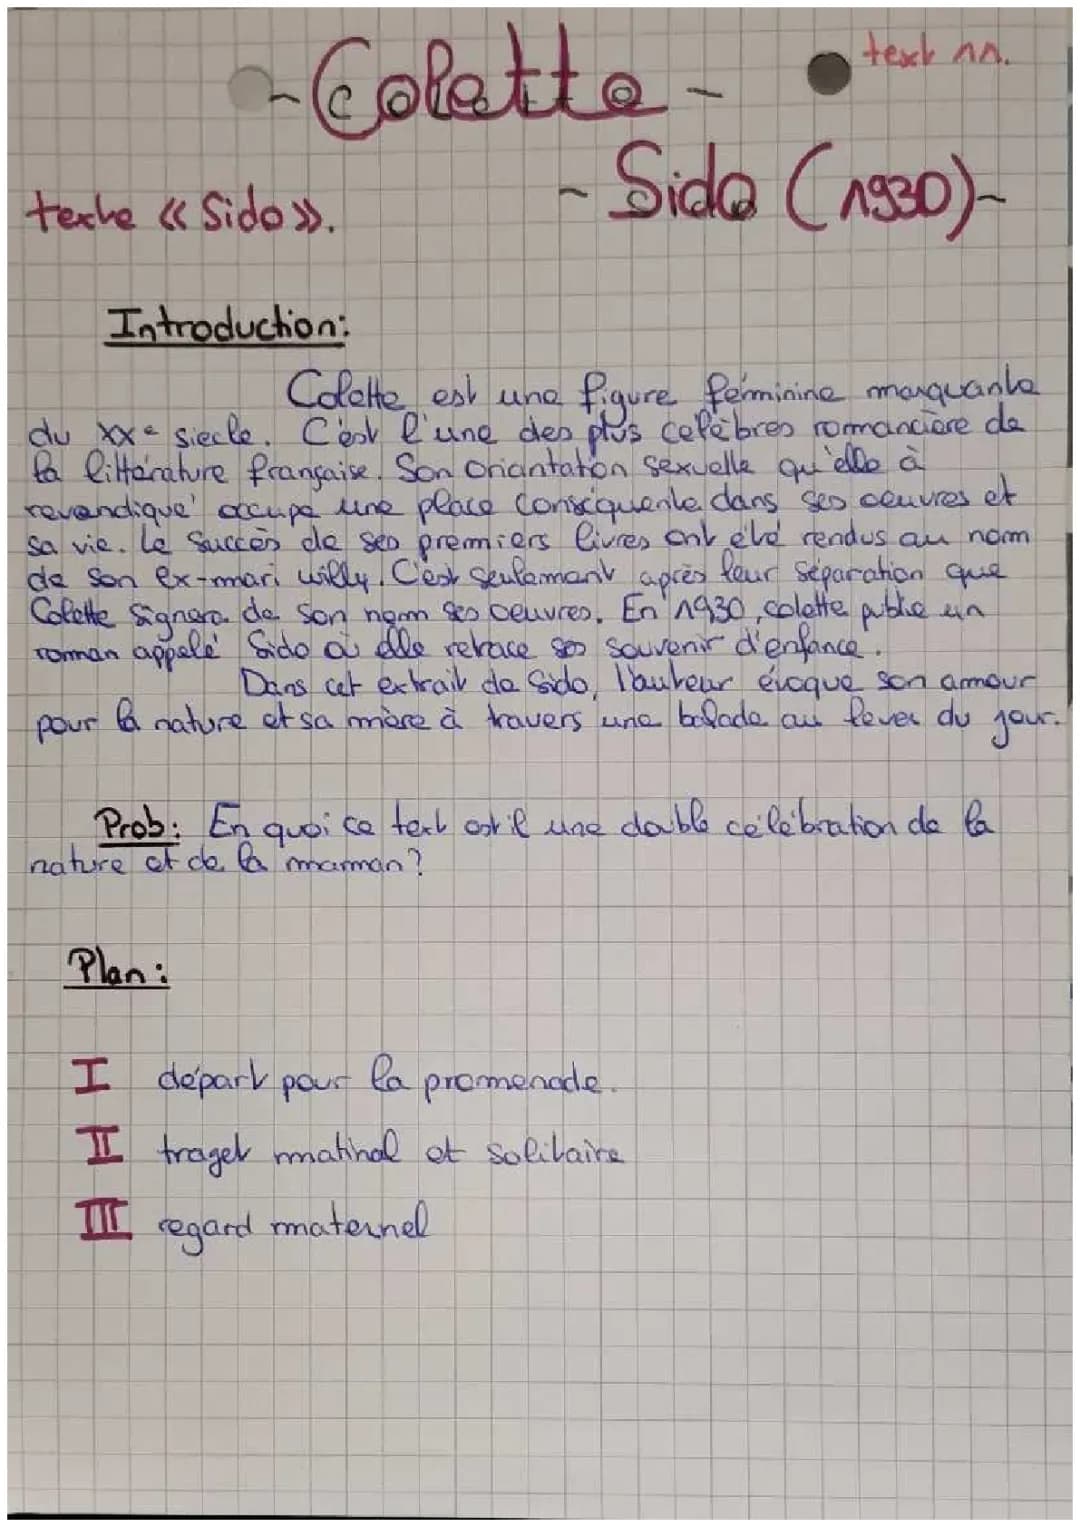 text 11.
- Colette -
- Sido (1930) -
texte << Sido >>.
Introduction:
Colette est une figure féminine marquante
du XXe siecle. C'est l'une des plus celèbres romancière de
la littérature française. Son oriantation sexuelle qu'elle à
revendiqué occupe une place conséquente dans ses oeuvres et
sa vie. Le succès de ses premiers livres ont été rendus au nom
de son ex-mari willy. C'est seulement après leur séparation que
Colette signera de son nom ses oeuvres. En 1930, colette publie un
roman appelé Sido où elle retrace ses souvenir d'enfance.
Dans cet extrait de Sido, l'auteur évoque son amour
pour la nature et sa mère à travers une balade au lever du jour.
Prob: En quoi ce text est il une double célébration de la
nature et de la maman?
Plan:
I départ pour la promenade.
II traget matinal et solitaire
III regard maternel